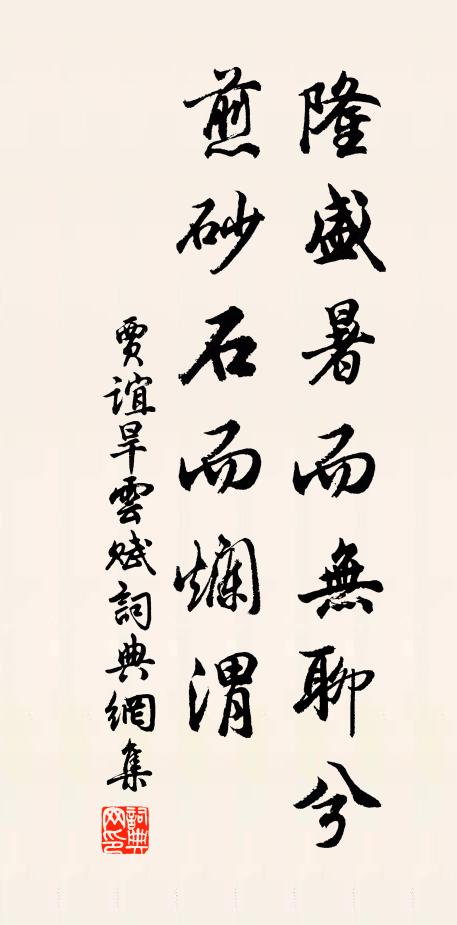 隆盛暑而無聊兮
煎砂石而爛渭
賈誼旱雲賦詞典網集
詞典網印